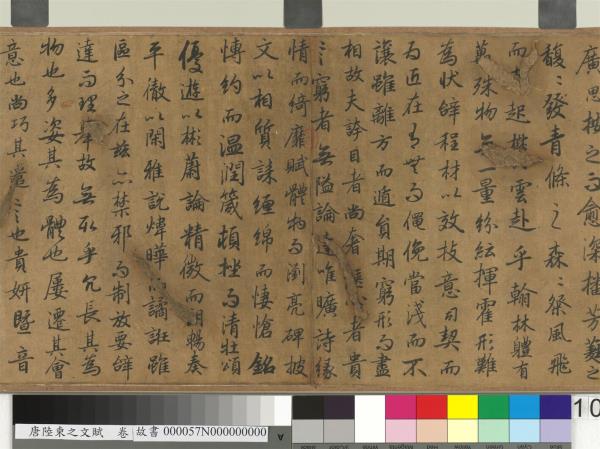 廣思按之而愈深播芳蕤之
馥〻發青條之森〻粲風飛
而起欝雲赴乎翰林體有
萬殊物無一量紛紜揮霍形難
為狀辭程材以效技意司契而
為匠在有無而僶俛當淺而不
讓雖離方而遁員期窮形而盡
相故夫誇目者尚奢愜心者貴
言窮者無隘論達唯曠詩緣
情而綺靡賦體物而瀏亮碑披
文以相質誄纏綿而悽愴銘
博約而溫潤箴頓挫而清壯頌
優遊以彬蔚論精微而朗暢奏
平徹以閑雅說煒曄而譎誑雖
區分之在茲亦禁邪而制放要辭
達而理舉故無取乎冗長其為
物也多姿其為體也屢遷其會
意也尚巧其遣言也貴妍暨音
唐陸柬之文賦 卷 故書 000057N000000000
A
10